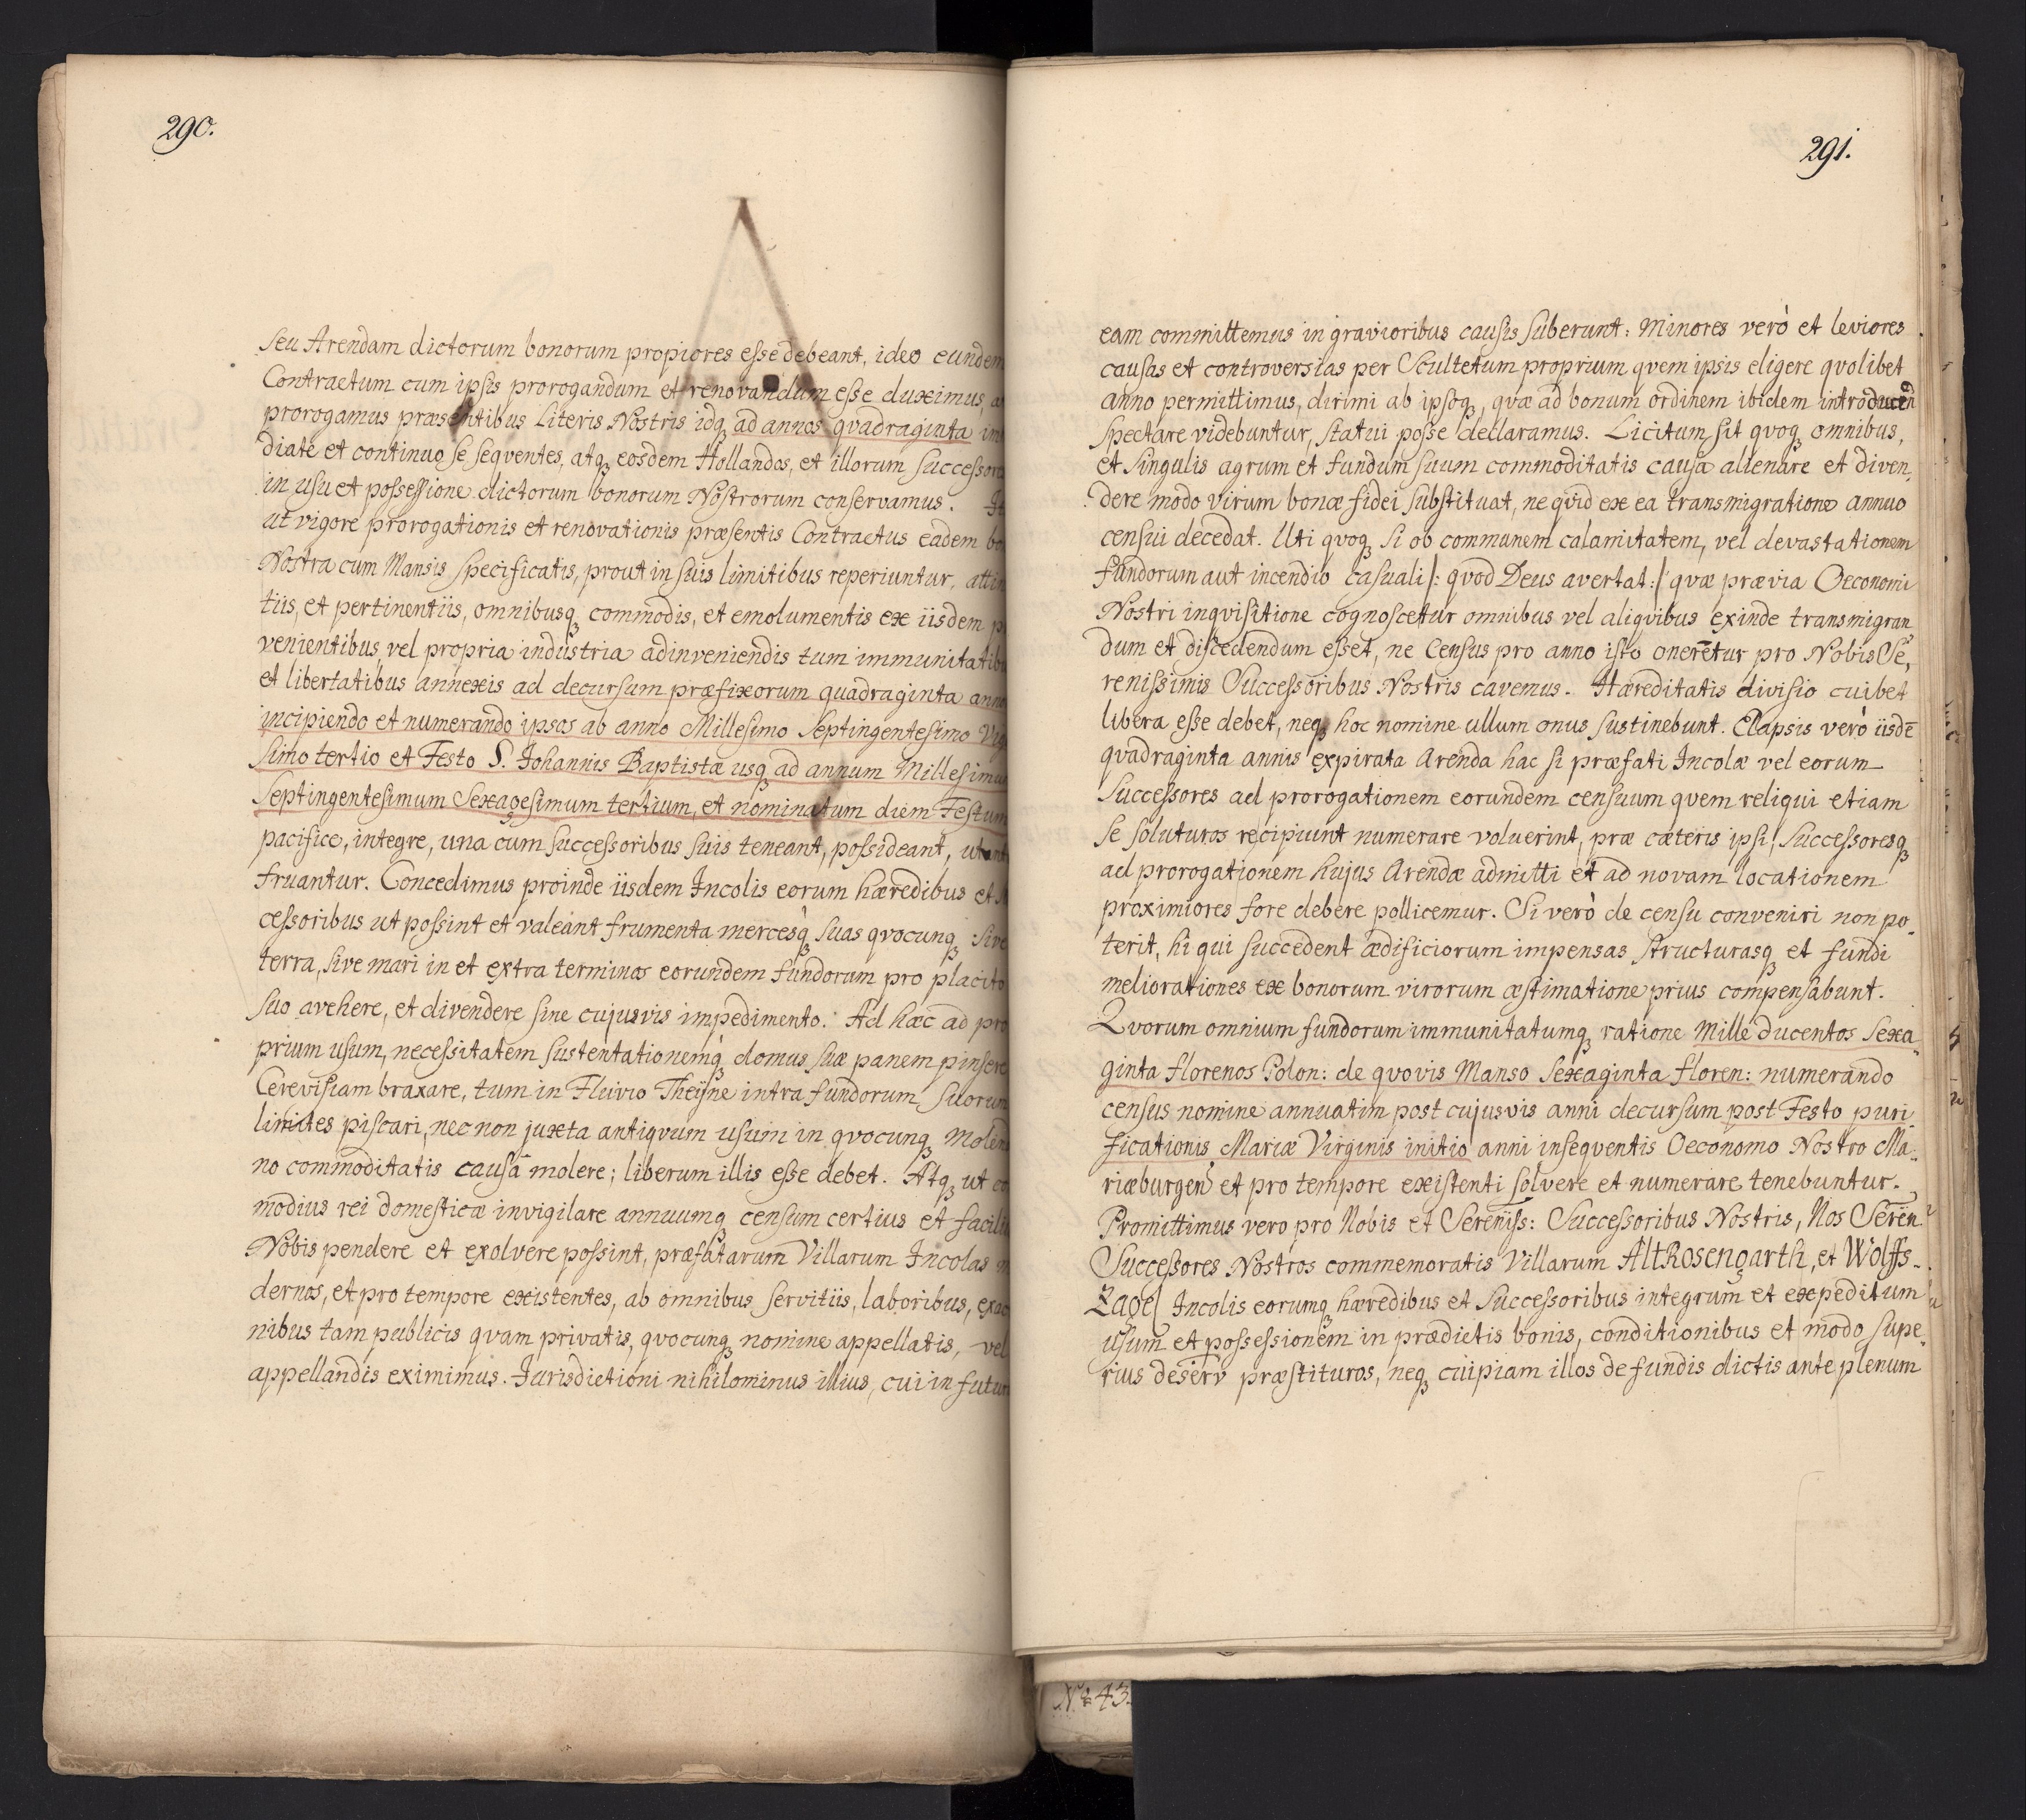 290.
Seu Arendam dictorum bonorum propiores esse debeant, ideo eundem
Contractum cum ipsis prorogandum et renovandum esse duximus,
prorogamus præsentibus Literis Nostris idq₃ ad annos qvadraginta im
diate et continuo se seqventes, atq₃ eosdem Hollandos, et illorum Successores
in usu et possessione dictorum bonorum Nostrorum conservamus. It
ut vigore prorogationis et renovationis præsentis Contractus eadem bo
Nostra cum Mansis specificatis, prout in suis limitibus reperiuntur, attin
tiis, et pertinentiis, omnibusq₃ commodis, et emolumentis ex iisdem p
venientibus, vel propria industria adinveniendis tum immunitatibu
et libertatibus annexis ad decursum præfixorum quadraginta anno
incipiendo et numerando ipsos ab anno Millesimo Septingentesimo Vig
simo tertio et Festo S. Johannis Baptistæ usq₃ ad annum Millesimum
Septingentesimum Sexagesimum tertium, et nominatum diem Festum
pacifice, integre, una cum successoribus suis teneant, possideant, utant
fruantur. Concedimus proinde iisdem Incolis eorum hæredibus et Su
cessoribus ut possint et valeant frumenta mercesq₃ suas qvocunq₃ sive
terra, sive mari in et extra terminos eorundem fundorum pro placito
suo avehere, et divendere sine cujusvis impedimento. Ad hæc ad pro
prium usum, necessitatem sustentationemq₃ domus suæ panem pinsere
Cerevisiam braxare, tum in Fluvio Theÿne intra fundorum suorum
limites piscari, nec non juxta antiqvum usum in qvocunq₃ Molend
no commoditatis causâ molere; liberum illis esse debet. Atq₃ ut co
modius rei domesticæ invigilare annuumq₃ censum certius et facili
Nobis pendere et exolvere possint, præfatarum Villarum Incolas m
dernos, et pro tempore existentes, ab omnibus servitiis, laboribus, exac
nibus tam publicis qvam privatis, qvocunq₃ nomine appellatis, vel
appellandis eximimus. Jurisdictioni nihilominus illius, cui in futur
291.
eam committemus in gravioribus causis suberunt: Minores verò et leviores
causas et controversias per Scultetum proprium qvem ipsis eligere qvolibet
anno permittimus, dirimi ab ipsoq₃, qvæ ad bonum ordinem ibidem introducend
spectare videbuntur, statui posse declaramus. Licitum sit qvoq₃ omnibus,
et singulis agrum et fundum suum commoditatis causa alienare et diven,
dere modo virum bonæ fidei substituat, ne qvid ex ea transmigratione annuo
censui decedat. Uti qvoq₃ si ob communem calamitatem, vel devastationem
fundorum aut incendio casuali /: qvod Deus avertat :/ qvæ prævia Oeconomi
Nostri inqvisitione cognoscetur omnibus vel aliqvibus exinde transmigran
dum et discedendum esset, ne Census pro anno isto onerētur pro Nobis Se,
renissimis Successoribus Nostris cavemus. Hæreditatis divisio cuibet
libera esse debet, neq₃ hoc nomine ullum onus sustinebunt. Elapsis verò iisdē
qvadraginta annis expirata Arenda hac si præfati Incolæ vel eorum
Successores ad prorogationem eorundem censuum qvem reliqui etiam
se soluturos recipiunt numerare voluerint, præ cæteris ipsi, Successoresq₃
ad prorogationem hujus Arendæ admitti et ad novam locationem
proximiores fore debere pollicemur. Si verò de censu conveniri non po„
terit, hi qui succedent ædificiorum impensas structurasq₃ et fundi
meliorationes ex bonorum virorum æstimatione prius compensabunt.
Qvorum omnium fundorum immunitatumq₃ ratione Mille ducentos Sexa„
ginta florenos Polon: de qvovis Manso Sexaginta floren: numerando
census nomine annuatim post cujusvis anni decursum post Festo puri
ficationis Mariæ Virginis initio anni inseqventis Oeconomo Nostro Ma„
riæburgen et pro tempore existenti solvere et numerare tenebuntur.
Promittimus vero pro Nobis et Sereniss: Successoribus Nostris, Nos Seren
Successores Nostros commemoratis Villarum AltRosengarth, et Wolffs-
Zagel Incolis eorumq₃ hæredibus et Successoribus integrum et expeditum
usum et possessionem in prædictis bonis, conditionibus et modo supe„
rius deserv præstituros, neq₃ cuipiam illos de fundis dictis ante plenum
No 43.